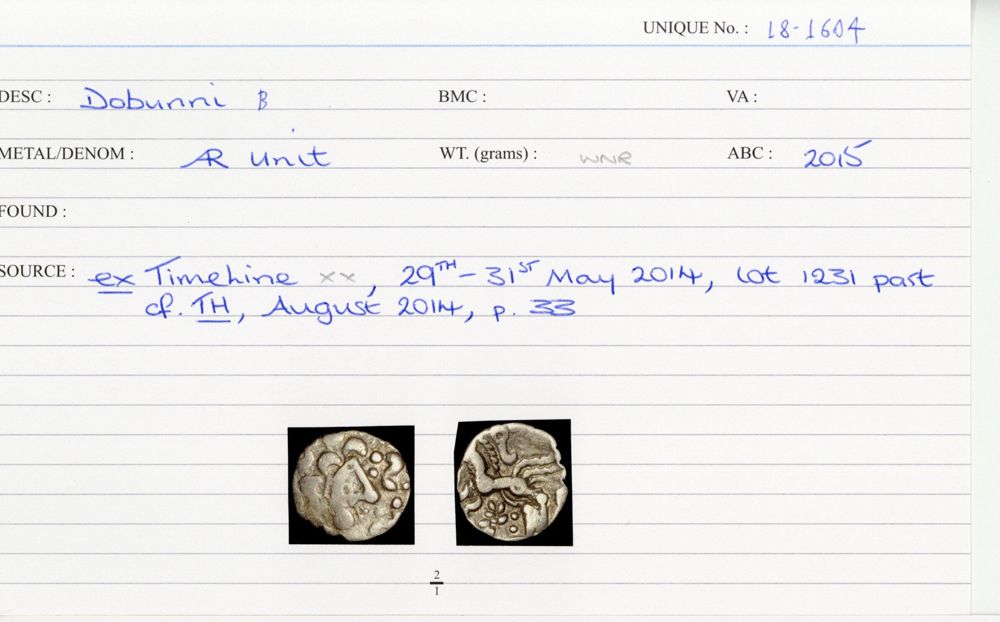 UNIQUE No. : 18-1604
DESC : Dobunni B BMC : VA :
METAL/DENOM : AR Unit WT. (grams) : WNR ABC : 2015
FOUND :
SOURCE : ex Timeline xx, 29TH - 31ST May 2014, lot 1231 part
cf. TH, August 2014, p. 33
2
1